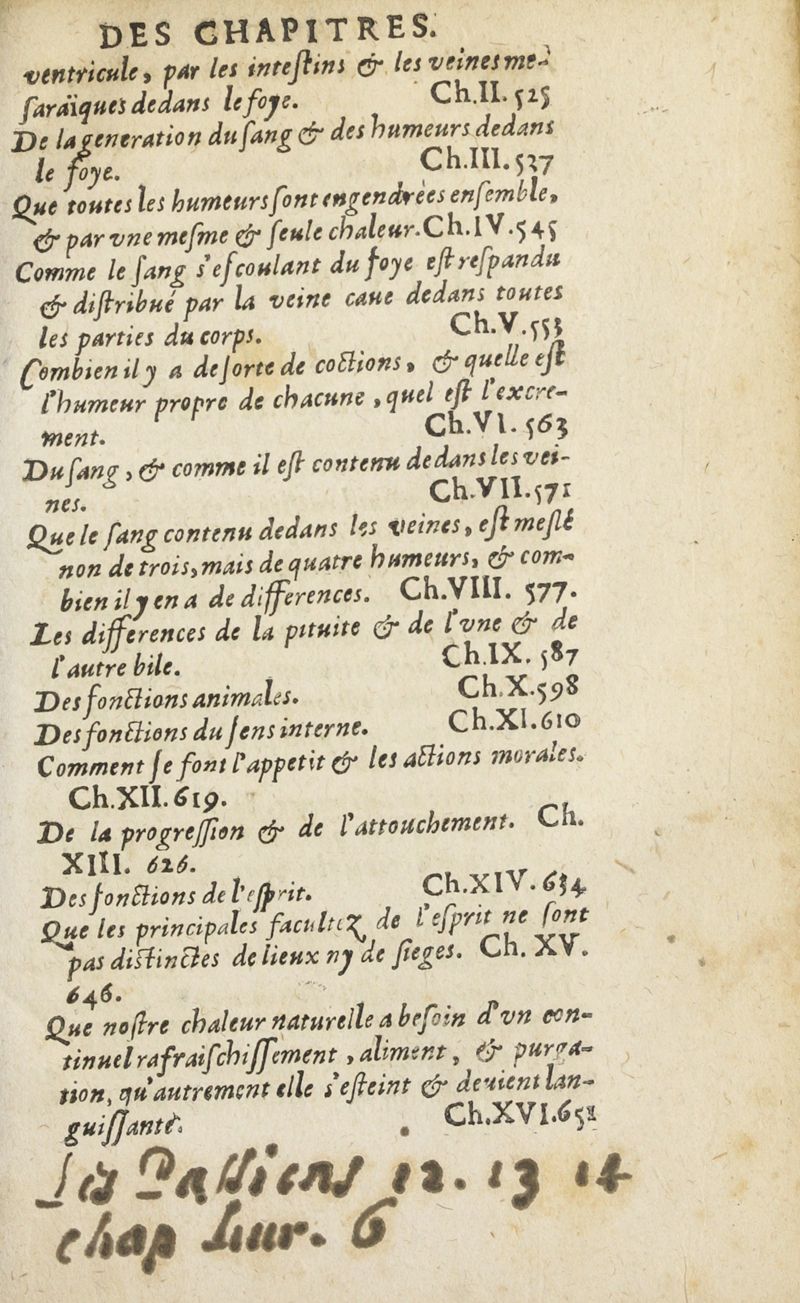 DES CHAPITRES.
ventricule, par les inteſtins & les veines me-
ſaraiques dedans le foye. Ch.II. 525
De la generation du ſang & des humeurs dedans
le foye. Ch.III. 537
Que toutes les humeurs ſont engendrées enſemble,
& par vne meſme & ſeule chaleur. Ch.IV. 545
Comme le ſang s'eſcoulant du foye eſt reſpandu
& diſtribué par la veine caue dedans toutes
les parties du corps. Ch.V. 553
Combien il y a de ſorte de coctions, & quelle eſt
l'humeur propre de chacune, quel eſt l'excre-
ment. Ch.VI. 563
Du ſang, & comme il eſt contenu dedans les vei-
nes. Ch.VII. 571
Que le ſang contenu dedans les veines, eſt meſlé
non de trois, mais de quatre humeurs, & com-
bien il y en a de differences. Ch.VIII. 577.
Les differences de la pituite & de l'vne & de
l'autre bile. Ch.IX. 587
Des fonctions animales. Ch.X. 598
Des fonctions du ſens interne. Ch.XI. 610
Comment ſe font l'appetit & les actions morales.
Ch.XII. 619.
De la progreſſion & de l'attouchement. Ch.
XIII. 626.
Des fonctions de l'eſprit. Ch.XIV. 634
Que les principales facultez de l'eſprit ne ſont
pas diſtinctes de lieux ny de ſieges. Ch. XV.
646.
Que noſtre chaleur naturelle a beſoin d'vn con-
tinuel rafraiſchiſſement, aliment, & purga-
tion, qu'autrement elle s'eſteint & deuient lan-
guiſſante. Ch.XVI. 651
12. 13 14
chap liur. 6